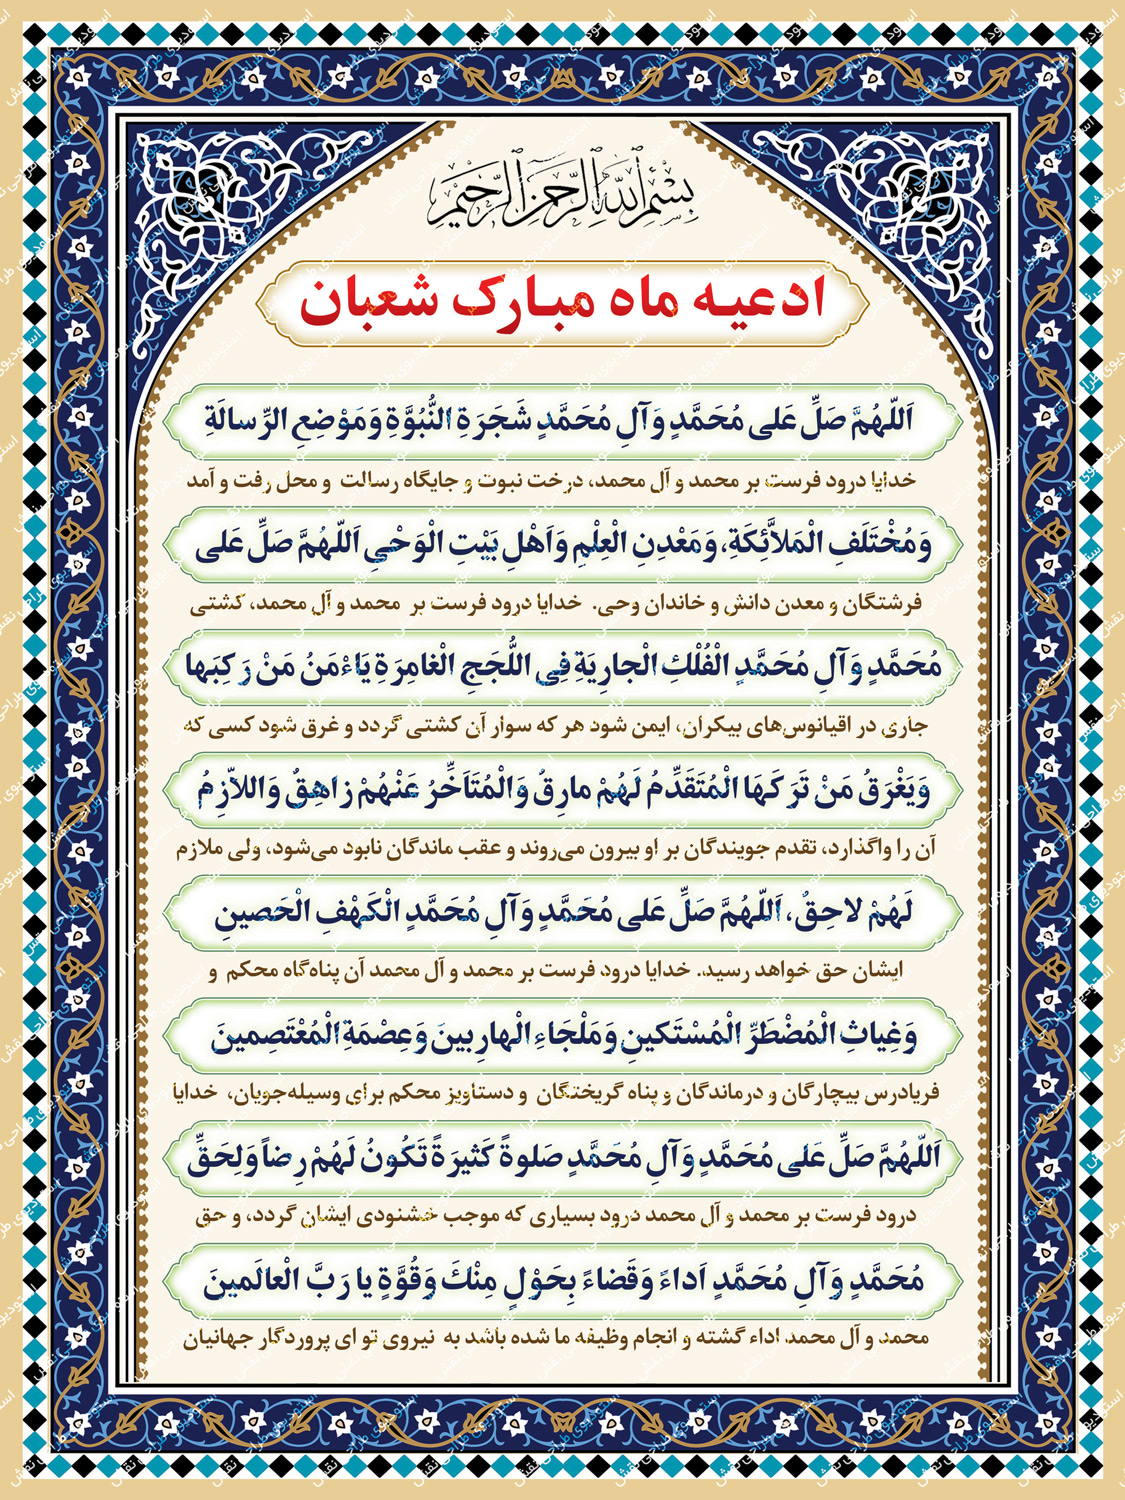 بِسْمِ اللهِ الرَّحْمنِ الرَّحيمِ
ادعیه ماه مبارک شعبان
اَللّهُمَّ صَلِّ عَلی مُحَمَّدٍ وَآلِ مُحَمَّدٍ شَجَرَةِ النُّبُوَّةِ وَمَوْضِعِ الرِّسالَةِ
خدایا درود فرست بر محمد و آل محمد، درخت نبوت و جایگاه رسالت و محل رفت و آمد
وَمُخْتَلَفِ الْمَلاَّئِكَةِ، وَمَعْدِنِ الْعِلْمِ وَاَهْلِ بَيْتِ الْوَحْیِ اَللّهُمَّ صَلِّ عَلی
فرشتگان و معدن دانش و خاندان وحی. خدایا درود فرست بر محمد و آل محمد، کشتی
مُحَمَّدٍ وَآلِ مُحَمَّدٍ الْفُلْكِ الْجارِيَةِ فِی اللُّجَجِ الْغامِرَةِ يَاءْمَنُ مَنْ رَكِبَها
جاری در اقیانوس‌های بیکران، ایمن شود هر که سوار آن کشتی گردد و غرق شود کسی که
وَيَغْرَقُ مَنْ تَرَكَهَا الْمُتَقَدِّمُ لَهُمْ مارِقٌ وَالْمُتَاَخِّرُ عَنْهُمْ زاهِقٌ وَاللاّزِمُ
آن را واگذارد، تقدم جویندگان بر او بیرون می‌روند و عقب ماندگان نابود می‌شود، ولی ملازم
لَهُمْ لاحِقٌ، اَللّهُمَّ صَلِّ عَلی مُحَمَّدٍ وَآلِ مُحَمَّدٍ الْكَهْفِ الْحَصينِ
ایشان حق خواهد رسید. خدایا درود فرست بر محمد و آل محمد آن پناه‌گاه محکم و
وَغِياثِ الْمُضْطَرِّ الْمُسْتَكينِ وَمَلْجَاءِ الْهارِبينَ وَعِصْمَةِ الْمُعْتَصِمينَ
فریادرس بیچارگان و درماندگان و پناه گریختگان و دستاویز محکم برای وسیله‌جویان، خدایا
اَللّهُمَّ صَلِّ عَلی مُحَمَّدٍ وَآلِ مُحَمَّدٍ صَلوةً كَثيرَةً تَكُونُ لَهُمْ رِضاً وَلِحَقِّ
درود فرست بر محمد و آل محمد درود بسیاری که موجب خشنودی ایشان گردد، و حق
مُحَمَّدٍ وَآلِ مُحَمَّدٍ اَداءً وَقَضاءً بِحَوْلٍ مِنْكَ وَقُوَّةٍ يا رَبَّ الْعالَمينَ
محمد و آل محمد اداء گشته و انجام وظیفه ما شده باشد به نیروی تو ای پروردگار جهانیان